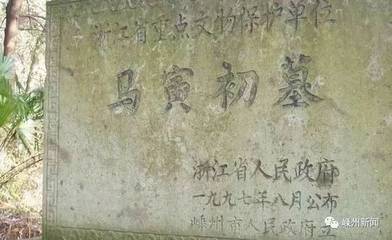 浙江省重点文物保护单位
马寅初墓
浙江省人民政府
一九九七年八月公布
嵊州市人民政府立
嵊州新闻